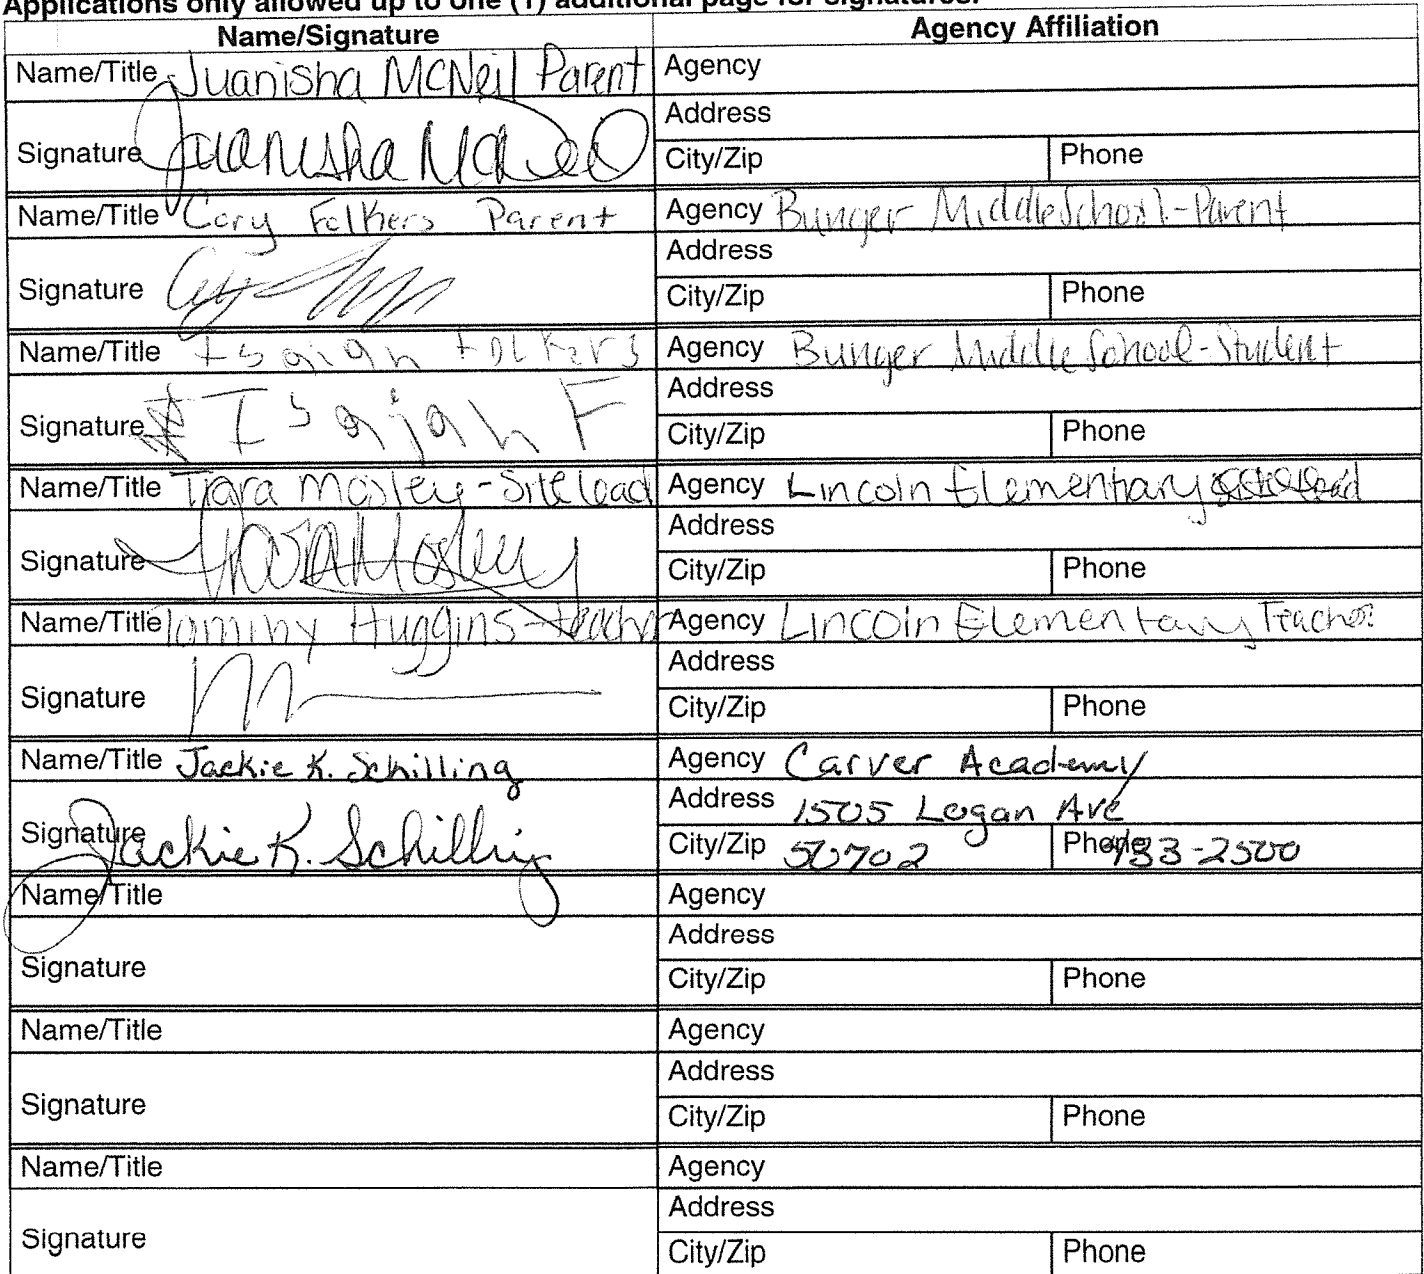 Applications only allowed up to one (1) additional page for signatures.
Name/Signature Agency Affiliation
Name/Title Juanisha McNeil Parent Agency
Address
Signature Juanisha McNeil
City/Zip Phone
Name/Title Cory Folkers Parent Agency Bunger Middle School-Parent
Address
Signature
City/Zip Phone
Name/Title Isaiah Folkers Agency Bunger Middle School-Student
Address
Signature Isaiah F
City/Zip Phone
Name/Title Tiara Mosley-Site lead Agency Lincoln Elementary
Address
Signature Tiara Mosley
City/Zip Phone
Name/Title Tammy Huggins-teacher Agency Lincoln Elementary Teacher
Address
Signature
City/Zip Phone
Name/Title Jackie K. Schilling Agency Carver Academy
Address 1505 Logan Ave
Signature Jackie K. Schilling
City/Zip 50702 Phone 433-2500
Name/Title Agency
Address
Signature
City/Zip Phone
Name/Title Agency
Address
Signature
City/Zip Phone
Name/Title Agency
Address
Signature
City/Zip Phone